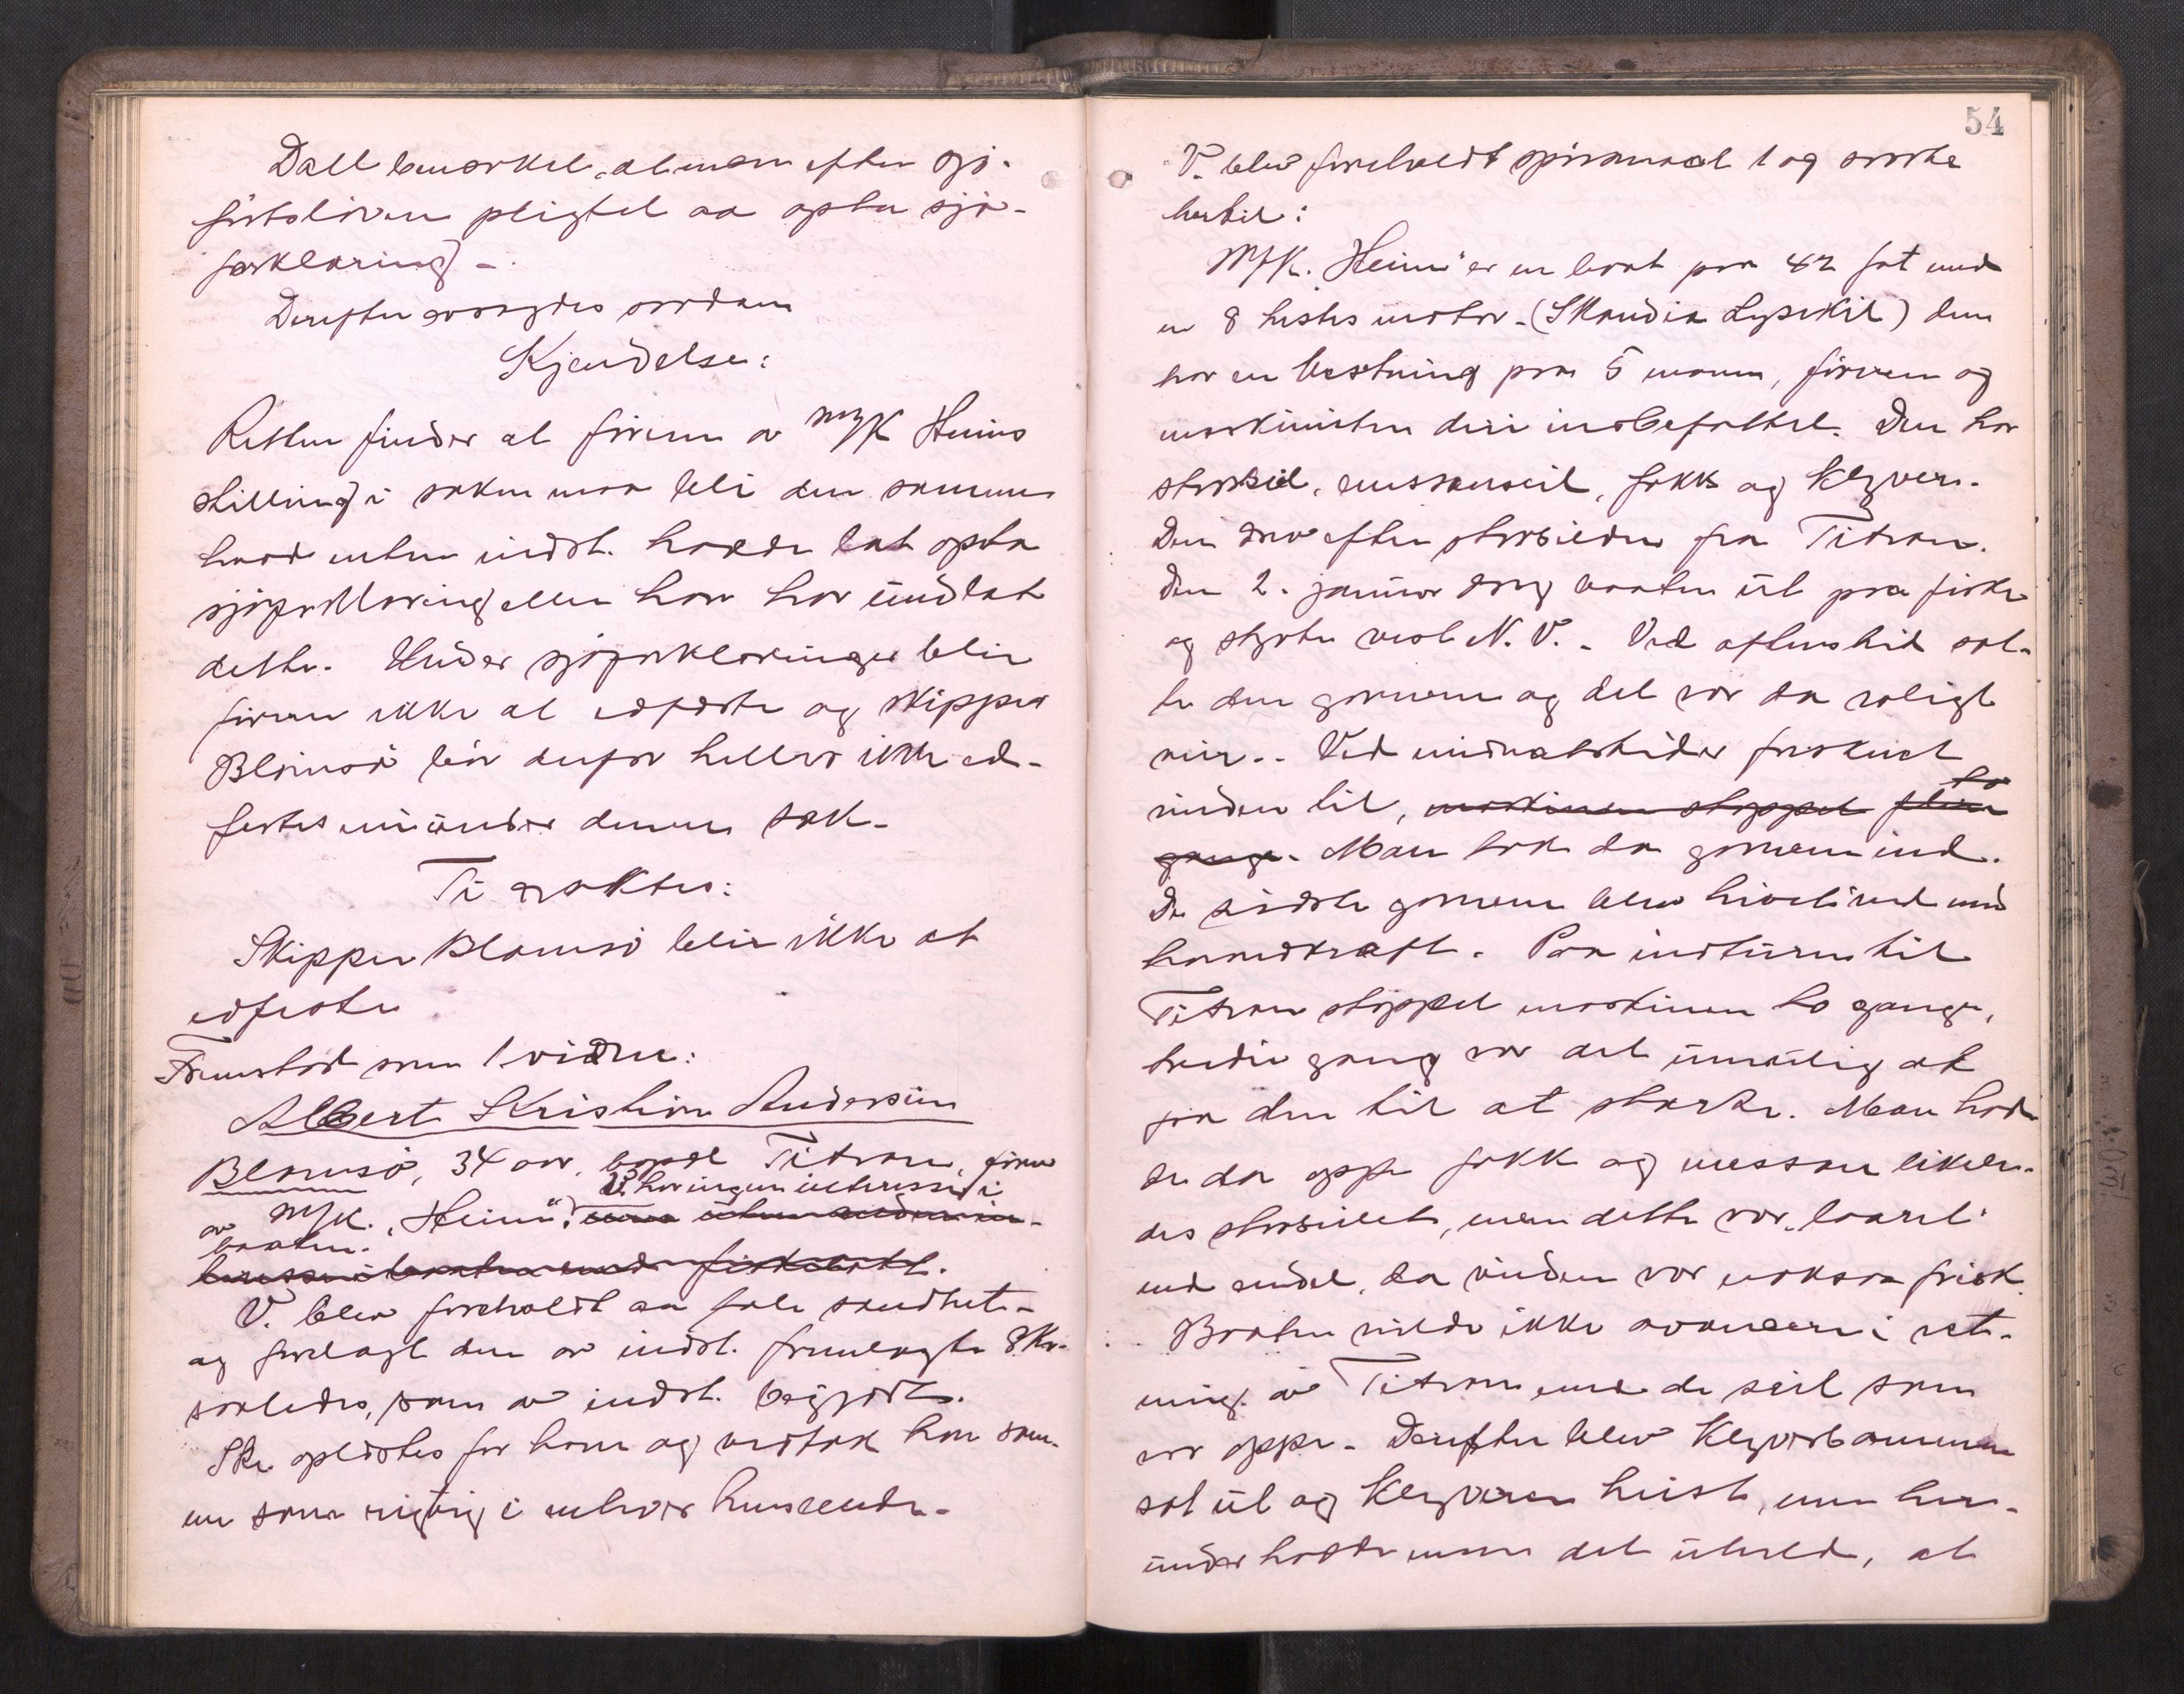 Dall bemerket, at man efter sjö-
fartsloven pligtet aa opta sjö-
forklaring -
Derefter avsagdes saadan
Kjendelse:
Retten finder at föreren av M/K Heims
stilling i saken maa bli den samme
hvad enten indst. hadde lat opta
sjöforklaring eller han har undlat
dette. Under sjöforklaringer blir
föreren ikke at edfæste og skipper
Blomsö bör derfor heller ikke ed-
festes under denne sak.
Ti ragtes:
Skipper Blomsö blir ikke at
edfeste
Fremstod som 1 vidne:
Albert Kristian Andersen
Blomsö, 34 aar, bopæl Titran, förer
V. har ingen interesse i
av M/K. "Heim". uten anden in-
baaten.
teresse i baaten end fiskelott.
V. blev foreholdt aa tale sandhet
og forelagt den av indst. fremlagte Skr.
saaledes, som av indst. begjært.
Skr. oplæstes for ham og vedtok han sam-
me som rigtig i enhver henseende.
54
V. blev foreholdt spörsmaal 1 og svarte
hertil:
M/K. "Heim" er en baat paa 42 fot med
en 8 hestes motor. (Skandia Lysekil) den
har en besetning paa 5 mann, föreren og
maskinisten deri indbefattet. Den har
storseil, mesanseil, fokk og klyver.
Den drev efter storsilden fra Titran.
Den 2. januar drog baaten ut paa fiske
og styrte vest N. V. - Ved aftenstid sat-
te den garnene og det var da roligt
veir. - Ved midnatstider frisknet
to
vinden til, maskinen stoppet flere
gange. Man tok da garnene ind.
De sidste garnene blev hivet ind med
haandkraft. Paa indturen til
Titran stoppet maskinen to gange,
tredie gang var det umulig at
faa den til at starte. Man had-
de da oppe fokk og messan likele-
des storseilet, men dette var laaret
ned endel, da vinden var noksaa frisk.
Baaten vilde ikke avancere i ret-
ning av Titran med de seil som
var oppe. Derefter blev klyverbommen
sat ut og klyveren heist, men her-
under hadde man det uheld, at